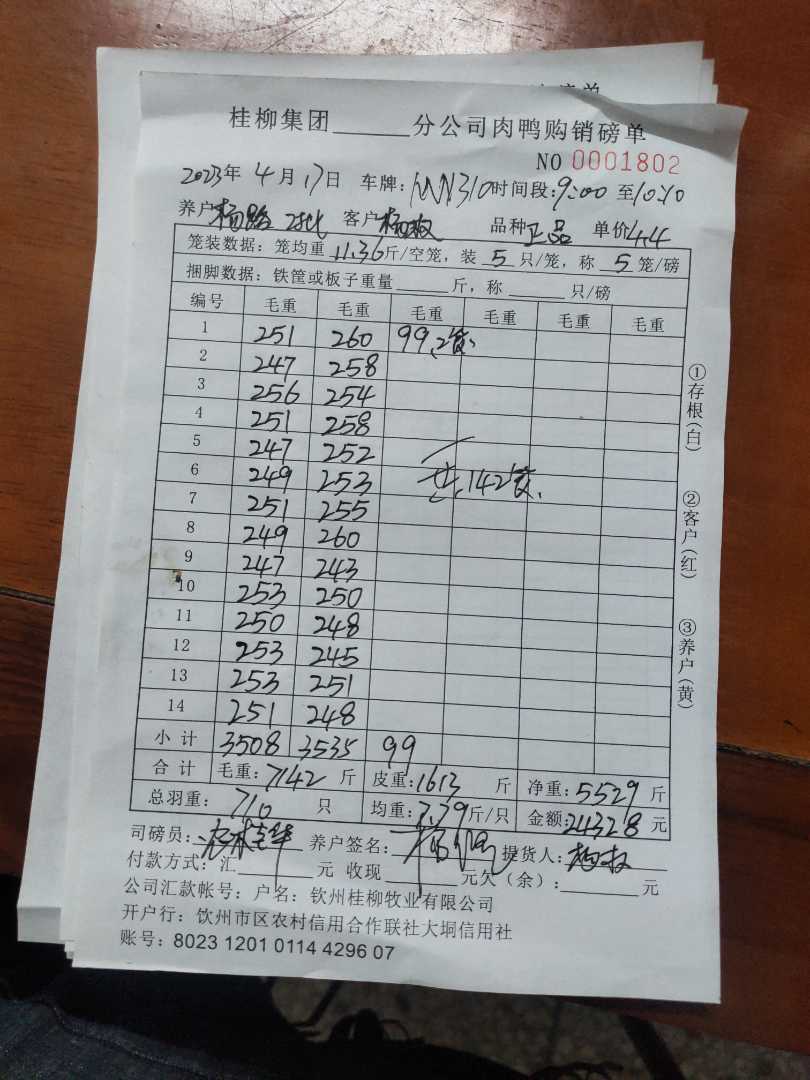 桂柳集团______分公司肉鸭购销磅单
NO 0001802
2023年 4月17日 车牌: 310 时间段:9:00 至10:10
养户 杨 客户 杨 品种 正品 单价4.4
笼装数据: 笼均重 11.36 斤/空笼, 装 5 只/笼, 称 5 笼/磅
捆脚数据: 铁筐或板子重量______斤, 称______只/磅
编号 毛重 毛重 毛重 毛重 毛重 毛重
1 251 260 99,2笼
2 247 258
3 256 254
4 251 258
5 247 252
6 249 253 共,142笼
7 251 255
8 249 260
9 247 243
10 253 250
11 250 248
12 253 245
13 253 251
14 251 248
小计 3508 3535 99
合计 毛重:7142 斤 皮重:1613 斤 净重:5529 斤
总羽重: 710 只 均重:7.79斤/只 金额:24328 元
司磅员: 养户签名: 杨 提货人: 杨
付款方式: 汇______元 收现______元欠(余):______元
公司汇款帐号: 户名: 钦州桂柳牧业有限公司
开户行: 钦州市区农村信用合作联社大垌信用社
账号: 8023 1201 0114 4296 07
①存根(白)
②客户(红)
③养户(黄)